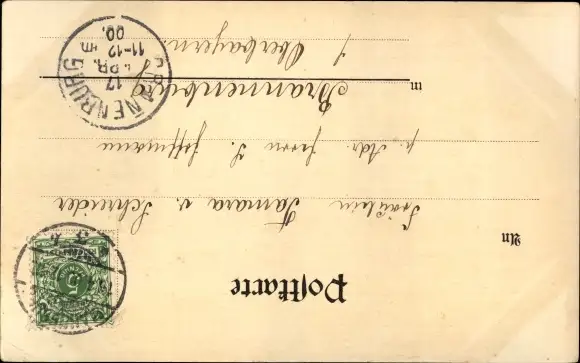 Postkarte
An
Fräulein Tamara v. Schneider
p. Adr. Herrn L. Hoffmann
in Brannenburg
/ Oberbayern.
BRANENBURG
17 APR.
11-12 Vm
00.
5